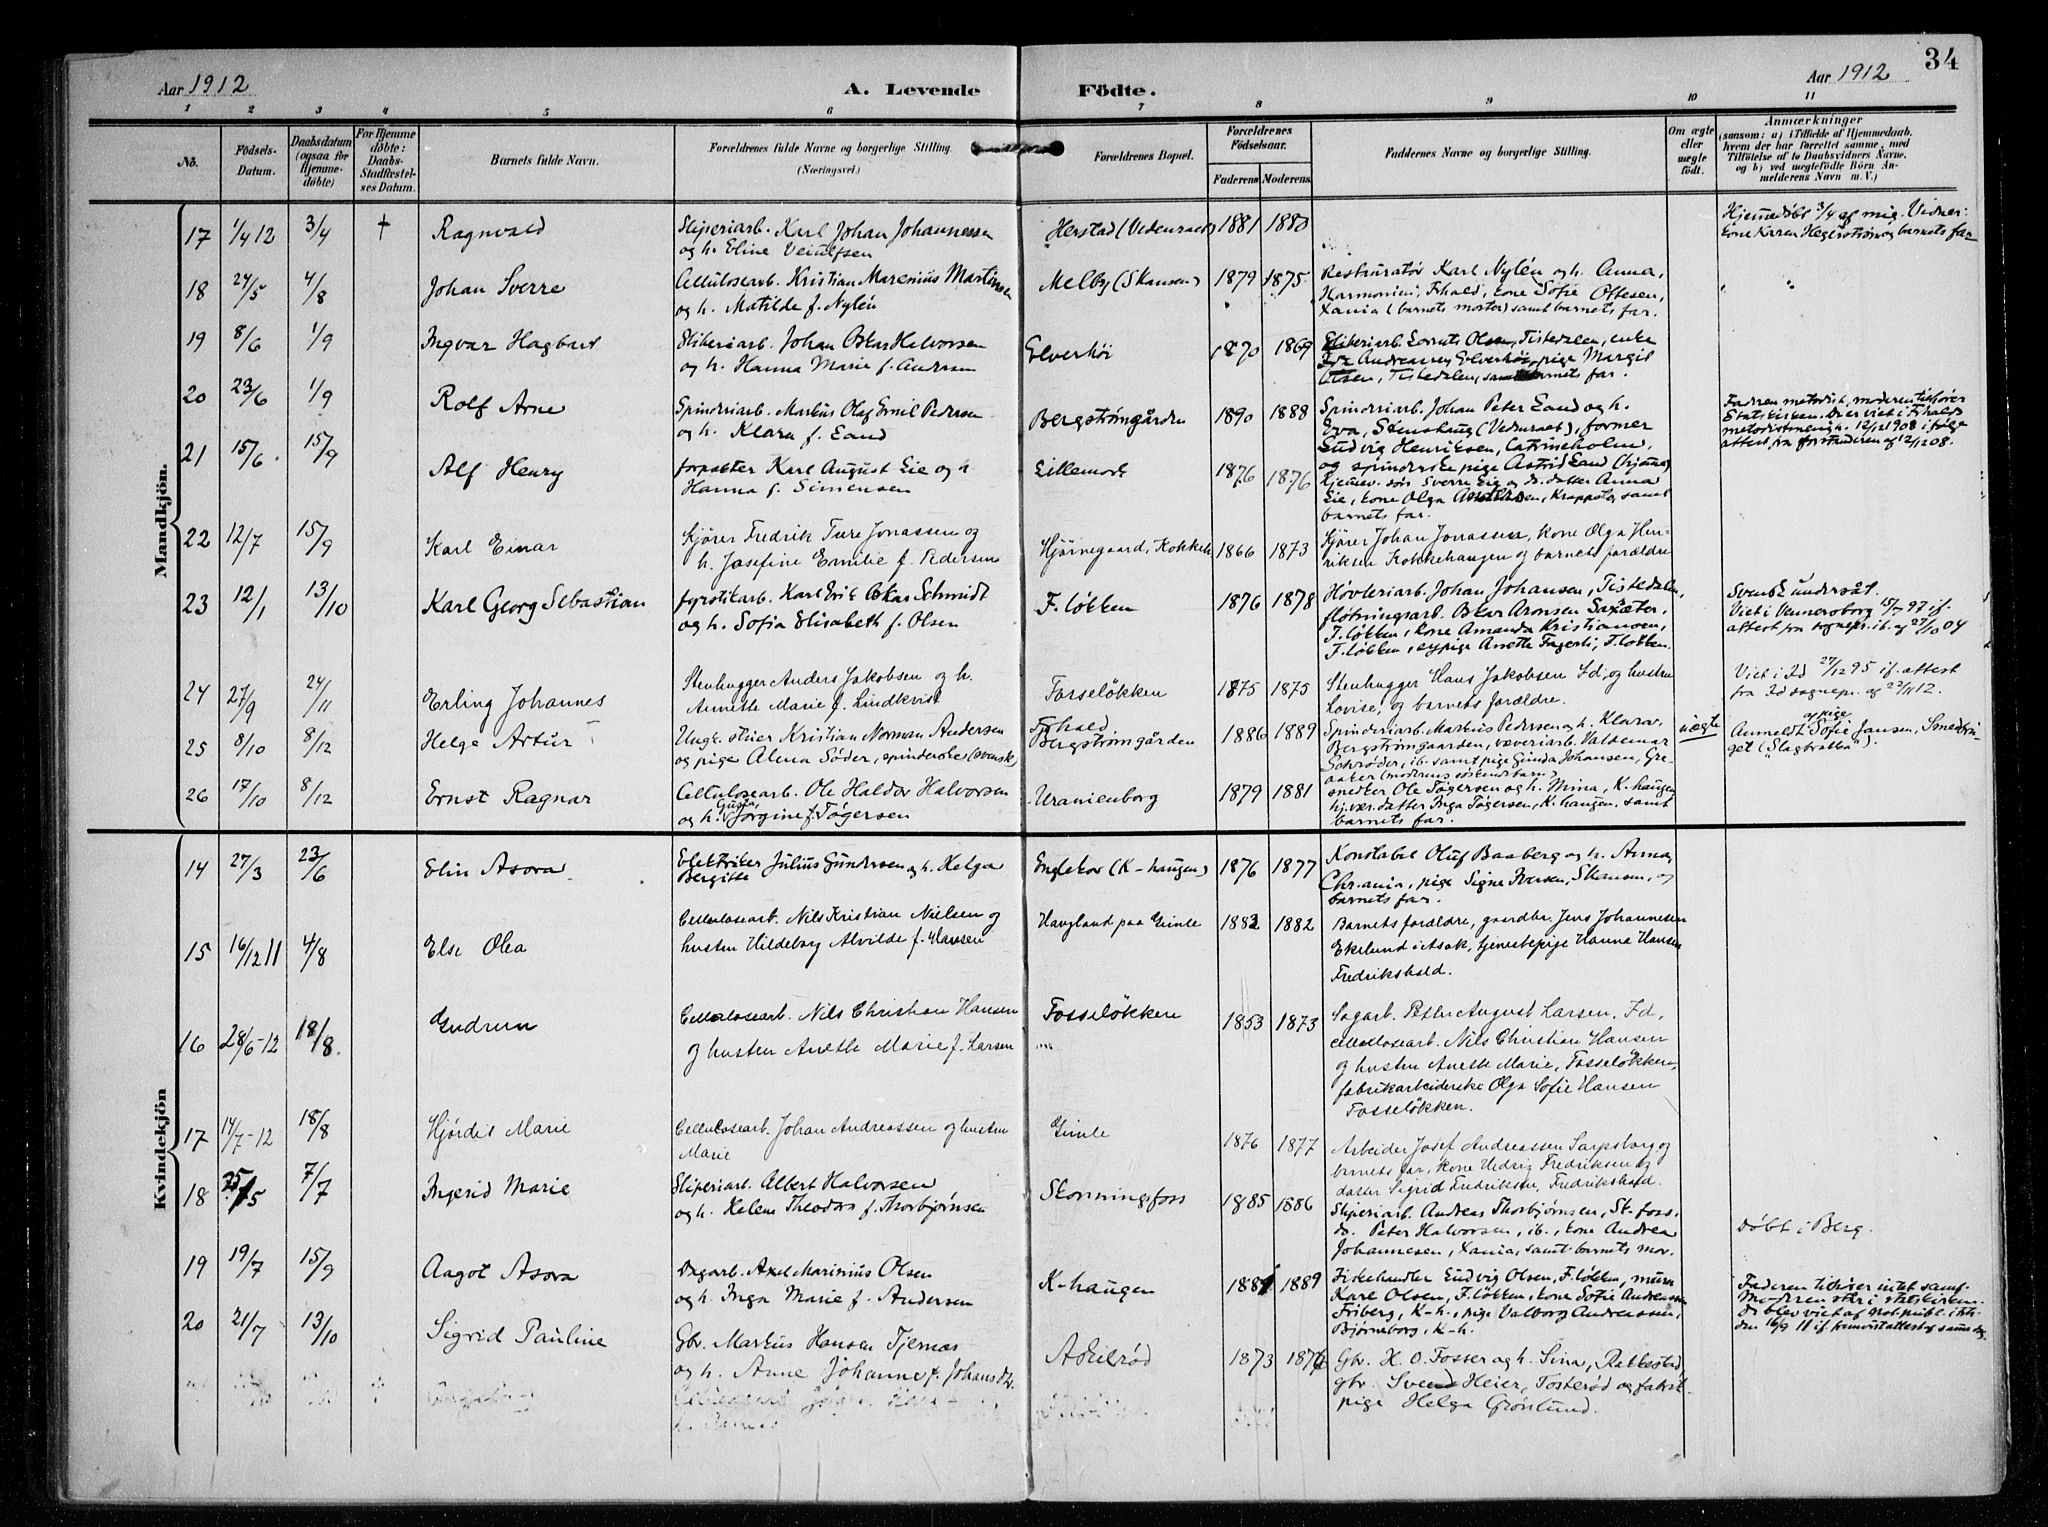 34
Aar 1912
A. Levende
Födte.
Aar 1912
1 2 3 4 5 6 7 8 9 10 11
No.
Födsels-Datum.
Daabsdatum (ogsaa for Hjemme-döbte)
For Hjemme döbte: Daabs-Stadfæstel-ses Datum.
Barnets fulde Navn.
Forældrenes fulde Navne og borgerlige Stilling. (Næringsvei.)
Forældrenes Bopæl.
Forældrenes Födselsaar.
Faderens Moderens.
Faddernes Navne og borgerlige Stilling.
Om ægte eller uægte födt.
Anmærkninger
(saasom: a) i Tilfælde af Hjemmedaab. hvem der har forrettet samme, med Tilföielse af to Daabsvidners Navne. og b) ved uægtefödte Börn An-melderens Navn m. V.)
Mandkjön.
17 1/4 12 3/4 † Ragnvald
Sliperiarb. Karl Johan Johannessen
og h. Eline Veiulfsen
Herstad (Vedenraet) 1881 1880
Hjemmedöbt 3/4 af mig. Vidner:
kone Karen Hegerström og barnets far
18 24/5 4/8 Johan Sverre
Cellulosearb. Kristian Marenius Martinsen
og h. Matilde f. Nylén
Melby (Skansen) 1879 1875
Restauratør Karl Nylén og h. Anna,
Harmonien, Fhald, kone Sofie Ottesen,
Xania (barnets moster) samt barnets far.
19 8/6 1/9 Ingvar Hagbart
Sliberiarb. Johan Oskar Halvorsen
og h. Hanna Marie f. Andersen
Elverhöi 1870 1869
Sliberiarb. Lornts Olsen, Tistedalen, enke
Andreassen Elverhöi, pige Margit
Olsen, Tistedalen, samt barnets far.
20 23/6 1/9 Rolf Arne
Spinderiarb. Markus Olaf Emil Pedersen
og h. Klara f. Lund
Bergstrømgården 1890 1888
Spinderiarb. Johan Peter Lund og h.
Eva, Stenshaug (Vedenraet), former
Ludvig Henriksen, Catrineholm,
og spinderske pige Astrid Lund (hjemme)
Faderen metodist, moderen tilhører
Statskirken. De er viet i Fhalds
metodistmenigh. 12/12 1908 ifølge
attest fra forstanderen af 12/12 08.
21 15/6 15/9 Alf Henry
forpakter Karl August Eie og h.
Hanna f. Simensen
Lillemark 1876 1876
Hjemmev. søn Sverre Eie og ds. datter Anna
Eie, kone Olga Andersen, Krappeto, samt
barnets far.
22 12/7 15/9 Karl Einar
Kjører Fredrik Ture Jonassen og
h. Josefine Emilie f. Pedersen
Hjørnegaard, Kokkeh 1866 1873
Kjører Johan Jonassen, kone Olga Hen-
riksen Kokkehaugen og barnets forældre
23 12/1 13/10 Karl Georg Sebastian
fyrstikarb. Karl Erik Oskar Schmidt
og h. Sofia Elisabeth f. Olsen
F. løkken 1876 1878
Høvleriarb. Johan Johansen, Tistedalen,
fløtningsarb. Oskar Aronsen Sagsæter,
F. løkken, kone Amanda Kristiansen,
F. løkken, sypige Anette Fagerli, F. løkken.
Svensk undersåt.
Viet i Vennersborg 15/7 97 if.
attest fra sognepr. ib. af 27/10 04
24 27/9 24/11 Erling Johannes
Stenhugger Anders Jakobsen og h.
Annette Marie f. Lindkvist
Fosseløkken 1875 1875
Stenhugger Hans Jakobsen Id, og hustru
Lovise, og barnets forældre.
Viet i Id 27/12 95 if. attest
fra Id sognepr. af 22/11 12.
25 8/10 8/12 Helge Artur
Ungk. stuer Kristian Norman Andersen
og pige Alena Söder, spinderske (svensk)
Fhald
Bergstrømgården 1886 1889
Spinderiarb. Markus Pedersen og h. Klara,
Bergstrømgaarden, væveriarb. Valdemar
Schrøder, ib. samt pige Gunda Johansen, Gre-
aaker (moderens søskendebarn)
uægte
Anmeldt af pige Sofie Jansen, Smedbrin-
get ("Slagbratta").
26 17/10 8/12 Ernst Ragnar
Cellulosearb. Ole Haldor Halvorsen
og h. Gusta Jørgine f. Tøgersen
Uranienborg 1879 1881
snedker Ole Tøgersen og h. Mina, K. haugen
hj.vær. datter Inga Tøgersen, K. haugen, samt
barnets far.
Kvindekjön
14 27/3 23/6 Elin Asora
Elektriker Julius Gundersen og h. Helga
Bergitte
Englekor (K-haugen) 1876 1877
Konstabel Oluf Baaberg og h. Anna,
Chr.ania, pige Signe Iversen, Skansen, og
barnets far.
15 16/12 11 4/8 Else Olea
Cellulosearb. Nils Kristian Nielsen og
hustru Hildeborg Alvilde f. Hansen
Haugland paa Gimle 1882 1882
Barnets forældre, gaardbr. Jens Johannesen
Ekelund i Asak, tjenestepige Hanna Hansen
Fredrikshald.
16 28/6-12 18/8. Gudrun
Cellulosearb. Nils Christian Hansen
og hustru Anette Marie f. Larsen
Fosseløkken 1853 1873
Sagarb. Petter August Larsen, Id,
cellulosearb. Nils Christian Hansen
og hustru Anette Marie, Fosseløkken,
fabrikarbeiderske Olga Sofie Hansen
Fosseløkken.
17 14/7-12 18/8 Hjørdis Marie
Cellulosearb. Johan Andreassen og hustru
Marie
Gimle 1876 1877
Arbeider Josef Andreassen Sarpsborg og
barnets far, kone Hedvig Fredriksen og
datter Sigrid Fredriksen, Fredrikshald.
18 25/5 7/7 Ingerid Marie
Sliperiarb. Albert Halvorsen
og h. Helene Theodora f. Thorbjørnsen
Skonningsfoss 1885 1886
Sliperiarb. Andreas Thorbjørnsen, Sk-foss,
ds. Peter Halvorsen, ib., kone Andrea
Johannesen, Xania, samt barnets mor.
Døbt i Berg.
19 19/7 15/9 Aagot Asora
Dagarb. Axel Marinius Olsen
og h. Inga Marie f. Andersen
K-haugen 1889 1889
Fiskehandler Ludvig Olsen, F. løkken, murer
Karl Olsen, F. løkken, kone Sofie Andreassen
Friberg, K-h., pige Valborg Andreassen,
Bjørneborg, K-h.
Faderen tilhører intet samf.
Moderen står i statskirken.
De blev viet af not. publ. i Fh.
den 16/9 11 if. fremvist attest af samme dag.
20 21/7 13/10 Sigrid Pauline
Gbr. Markus Hansen Tjernæs
og h. Anne Johanne f. Johansdtr.
Askilrød 1873 1876
Gbr. H. O. Fosser og h. Sina, Rakkestad
gbr. Svend Heier, Tosterød og fabrik-
pige Helga Grønlund.